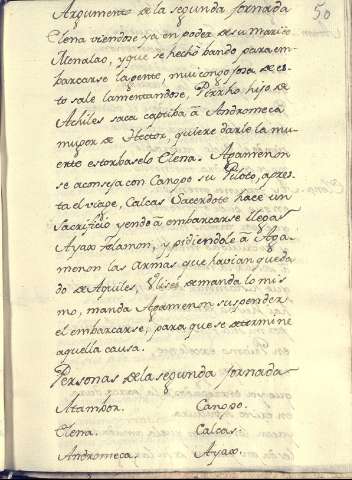 50
Argumento de la segunda Jornada
Elena viendose ya en poder de su marido
Menalao, y que se hechó bando para em-
barcarse la gente, mui congojosa de es-
to sale lamentandose, Pirrho hijo de
Achiles saca captiba â Andromeca
muger de Hector, quiere darle la mu-
erte estorbaselo Elena. Agamenon
se aconseja con Canopo su Piloto, apres-
ta el viage, Calcas Sacerdote hace un
Sacrificio yendo â embarcarse llega
Ayax Talamon, y pidiendole â Aga-
menon las Armas que havian queda
do de Aquiles, Ulises demanda lo mis-
mo, manda Agamenon suspender
el embarcarse, para que se determine
aquella causa.
Personas de la segunda Jornada
Atambor. Canopo.
Elena. Calcas.
Andromeca. Ayax.